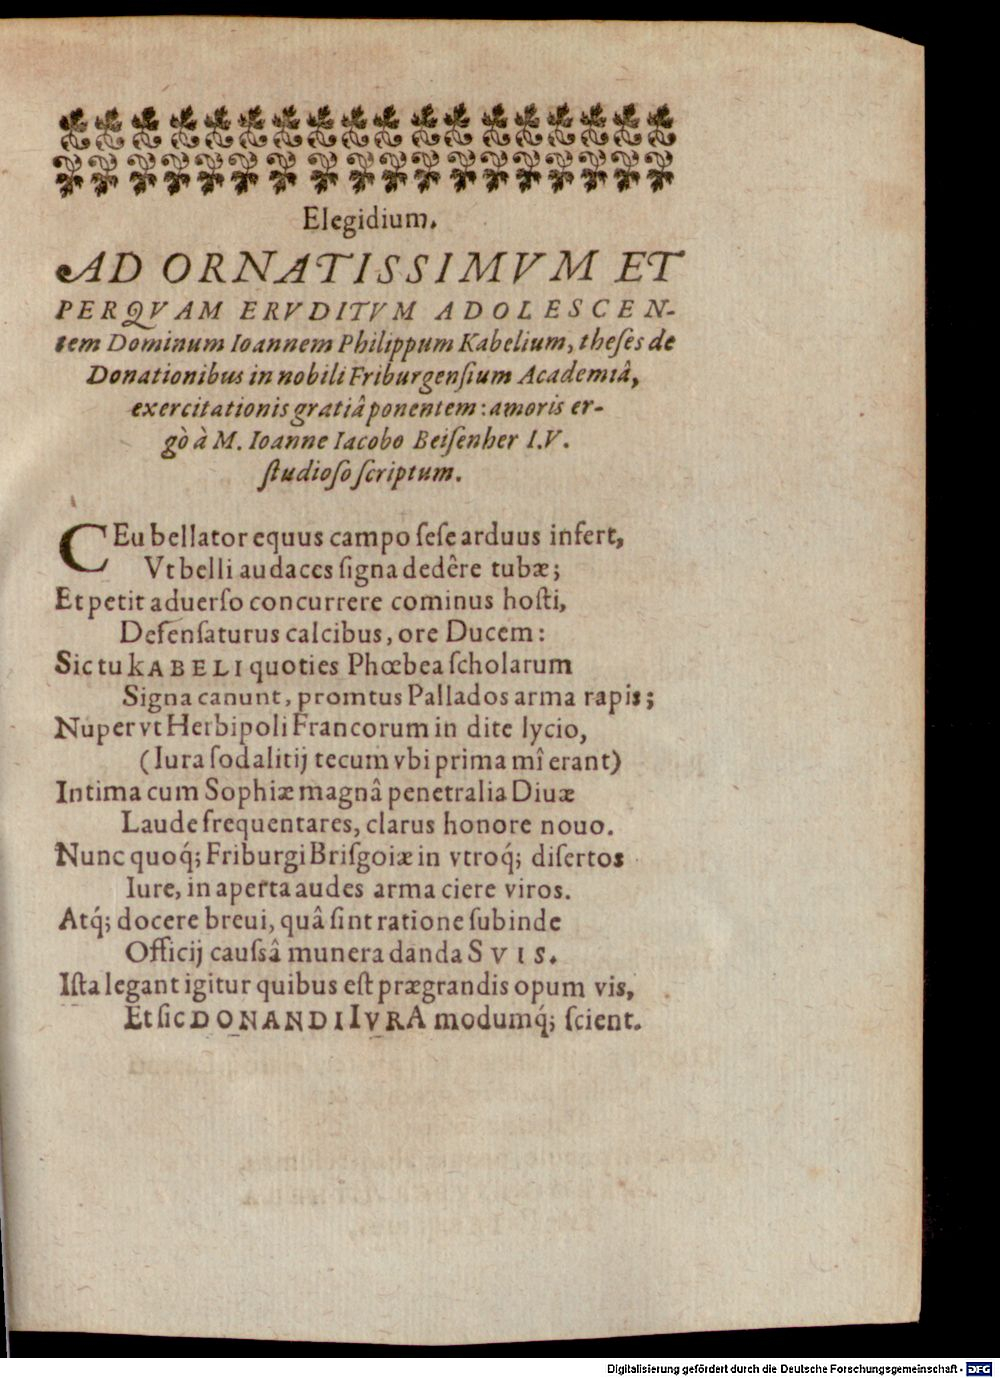 Elegidium.
AD ORNATISSIMVM ET
PERQVAM ERVDITVM ADOLESCEN-
tem Dominum Ioannem Philippum Kabelium, theſes de
Donationibus in nobili Friburgenſium Academiâ,
exercitationis gratiâ ponentem: amoris er-
gò à M. Ioanne Iacobo Beiſenher I.V.
ſtudioſo ſcriptum.
CEu bellator equus campo ſeſe arduus infert,
Vt belli audaces ſigna dedêre tubæ;
Et petit aduerſo concurrere cominus hoſti,
Defenſaturus calcibus, ore Ducem:
Sic tu KABELI quoties Phœbea ſcholarum
Signa canunt, promtus Pallados arma rapis;
Nuper vt Herbipoli Francorum in dite lycio,
(Iura ſodalitij tecum vbi prima mî erant)
Intima cum Sophiæ magnâ penetralia Diuæ
Laude frequentares, clarus honore nouo.
Nunc quoq́; Friburgi Briſgoiæ in vtroq́; diſertos
Iure, in aperta audes arma ciere viros.
Atq́; docere breui, quâ ſint ratione ſubinde
Officij cauſsâ munera danda SVIS.
Iſta legant igitur quibus eſt prægrandis opum vis,
Et ſic DONANDI IVRA modumq́; ſcient.
Digitalisierung gefördert durch die Deutsche Forschungsgemeinschaft - DFG